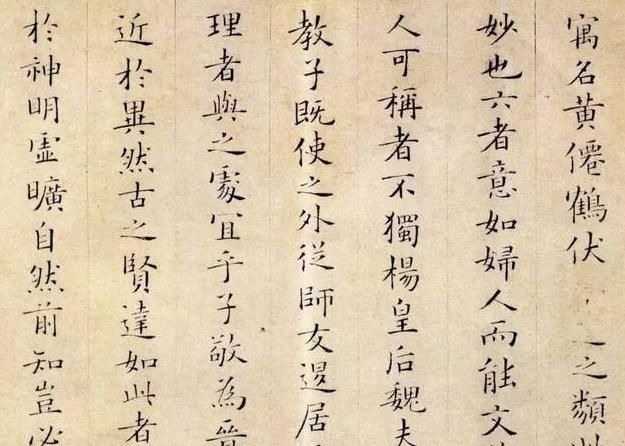 寓名黃僊鶴伏之類
妙也六者意如婦人而能文
人可稱者不獨楊皇后魏夫
教子既使之外從師友退居
理者與之處宜乎子敬為
近於異然古之賢達如此者
於神明虛曠自然前知豈必